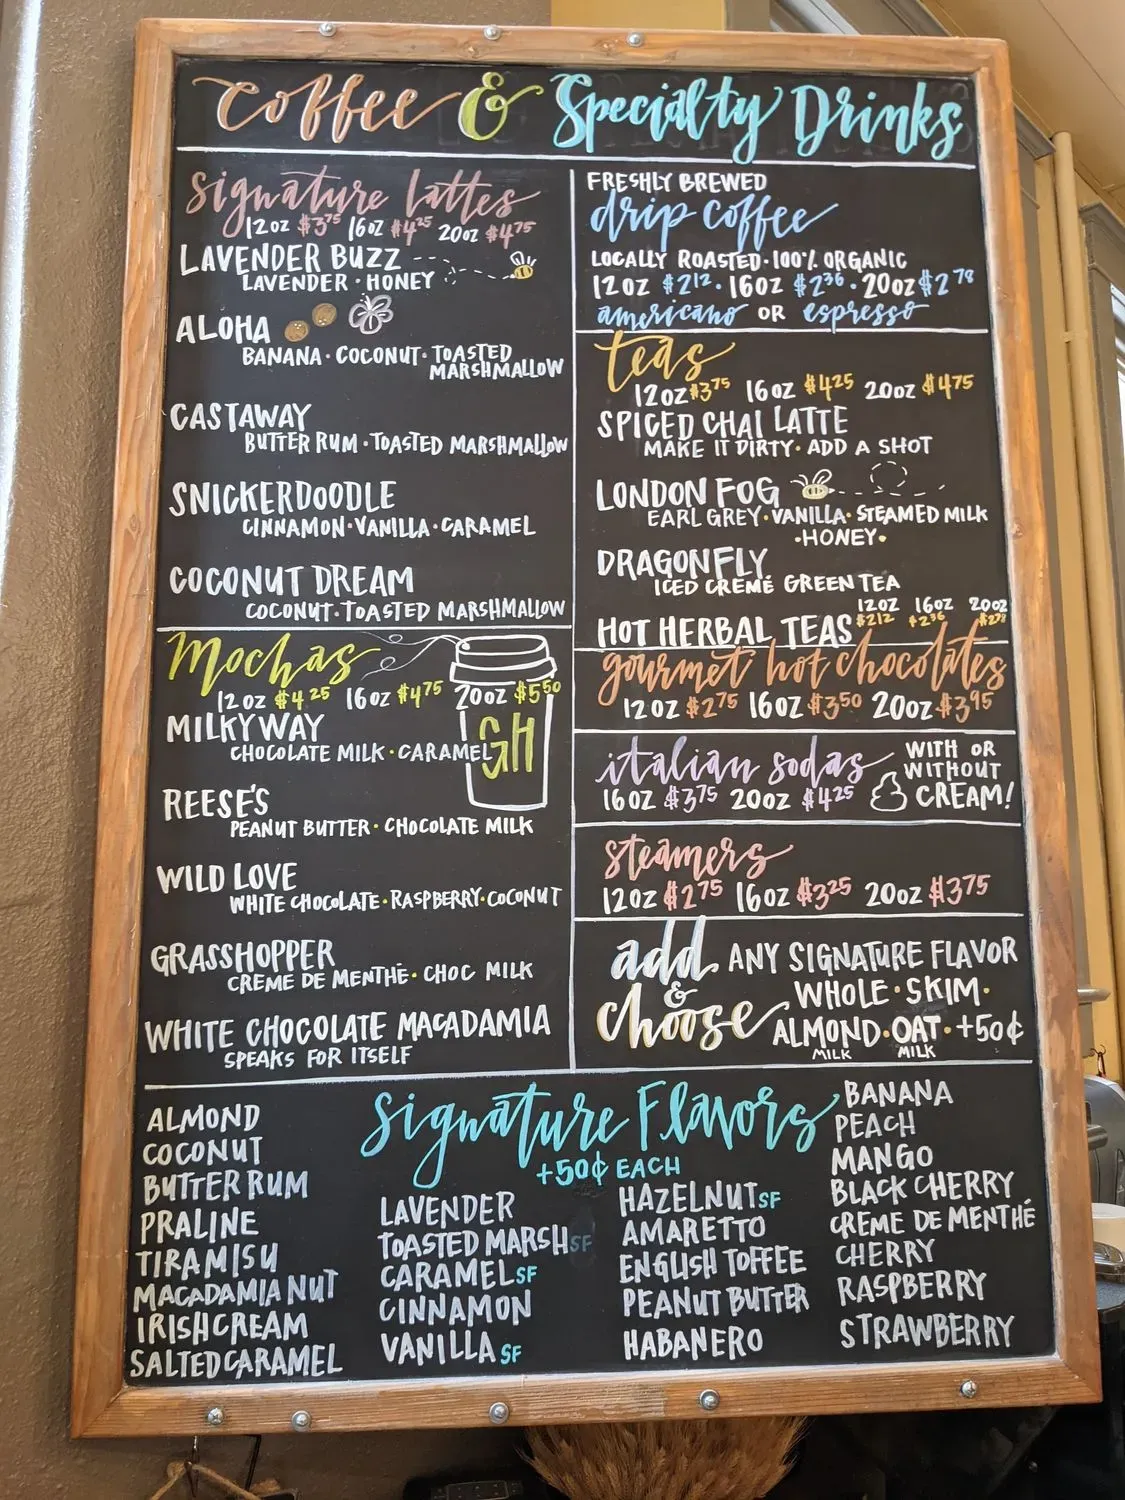 Coffee & Specialty Drinks
Signature Lattes
12oz $3.75 16oz $4.25 20oz $4.75
LAVENDER BUZZ
LAVENDER · HONEY
ALOHA
BANANA · COCONUT · TOASTED
MARSHMALLOW
CASTAWAY
BUTTER RUM · TOASTED MARSHMALLOW
SNICKERDOODLE
CINNAMON · VANILLA · CARAMEL
COCONUT DREAM
COCONUT · TOASTED MARSHMALLOW
Mochas
12oz $4.25 16oz $4.75 20oz $5.50
MILKY WAY
CHOCOLATE MILK · CARAMEL
GH
REESE'S
PEANUT BUTTER · CHOCOLATE MILK
WILD LOVE
WHITE CHOCOLATE · RASPBERRY · COCONUT
GRASSHOPPER
CREME DE MENTHE · CHOC MILK
WHITE CHOCOLATE MACADAMIA
SPEAKS FOR ITSELF
FRESHLY BREWED
drip coffee
LOCALLY ROASTED · 100% ORGANIC
12oz $2.12 · 16oz $2.36 · 20oz $2.78
americano OR espresso
teas
12oz $3.75 16oz $4.25 20oz $4.75
SPICED CHAI LATTE
MAKE IT DIRTY · ADD A SHOT
LONDON FOG
EARL GREY · VANILLA · STEAMED MILK
· HONEY ·
DRAGONFLY
ICED CREMÉ GREEN TEA
12oz 16oz 20oz
HOT HERBAL TEAS $2.12 $2.36 $2.78
gourmet hot chocolates
12oz $2.75 16oz $3.50 20oz $3.95
italian sodas
16oz $3.75 20oz $4.25
WITH OR
WITHOUT
CREAM!
steamers
12oz $2.75 16oz $3.25 20oz $3.75
add & choose
ANY SIGNATURE FLAVOR
WHOLE · SKIM ·
ALMOND MILK · OAT MILK · +50¢
Signature Flavors
+50¢ EACH
ALMOND
COCONUT
BUTTER RUM
PRALINE
TIRAMISU
MACADAMIA NUT
IRISH CREAM
SALTED CARAMEL
LAVENDER
TOASTED MARSH SF
CARAMEL SF
CINNAMON
VANILLA SF
HAZELNUT SF
AMARETTO
ENGLISH TOFFEE
PEANUT BUTTER
HABANERO
BANANA
PEACH
MANGO
BLACK CHERRY
CREME DE MENTHÉ
CHERRY
RASPBERRY
STRAWBERRY